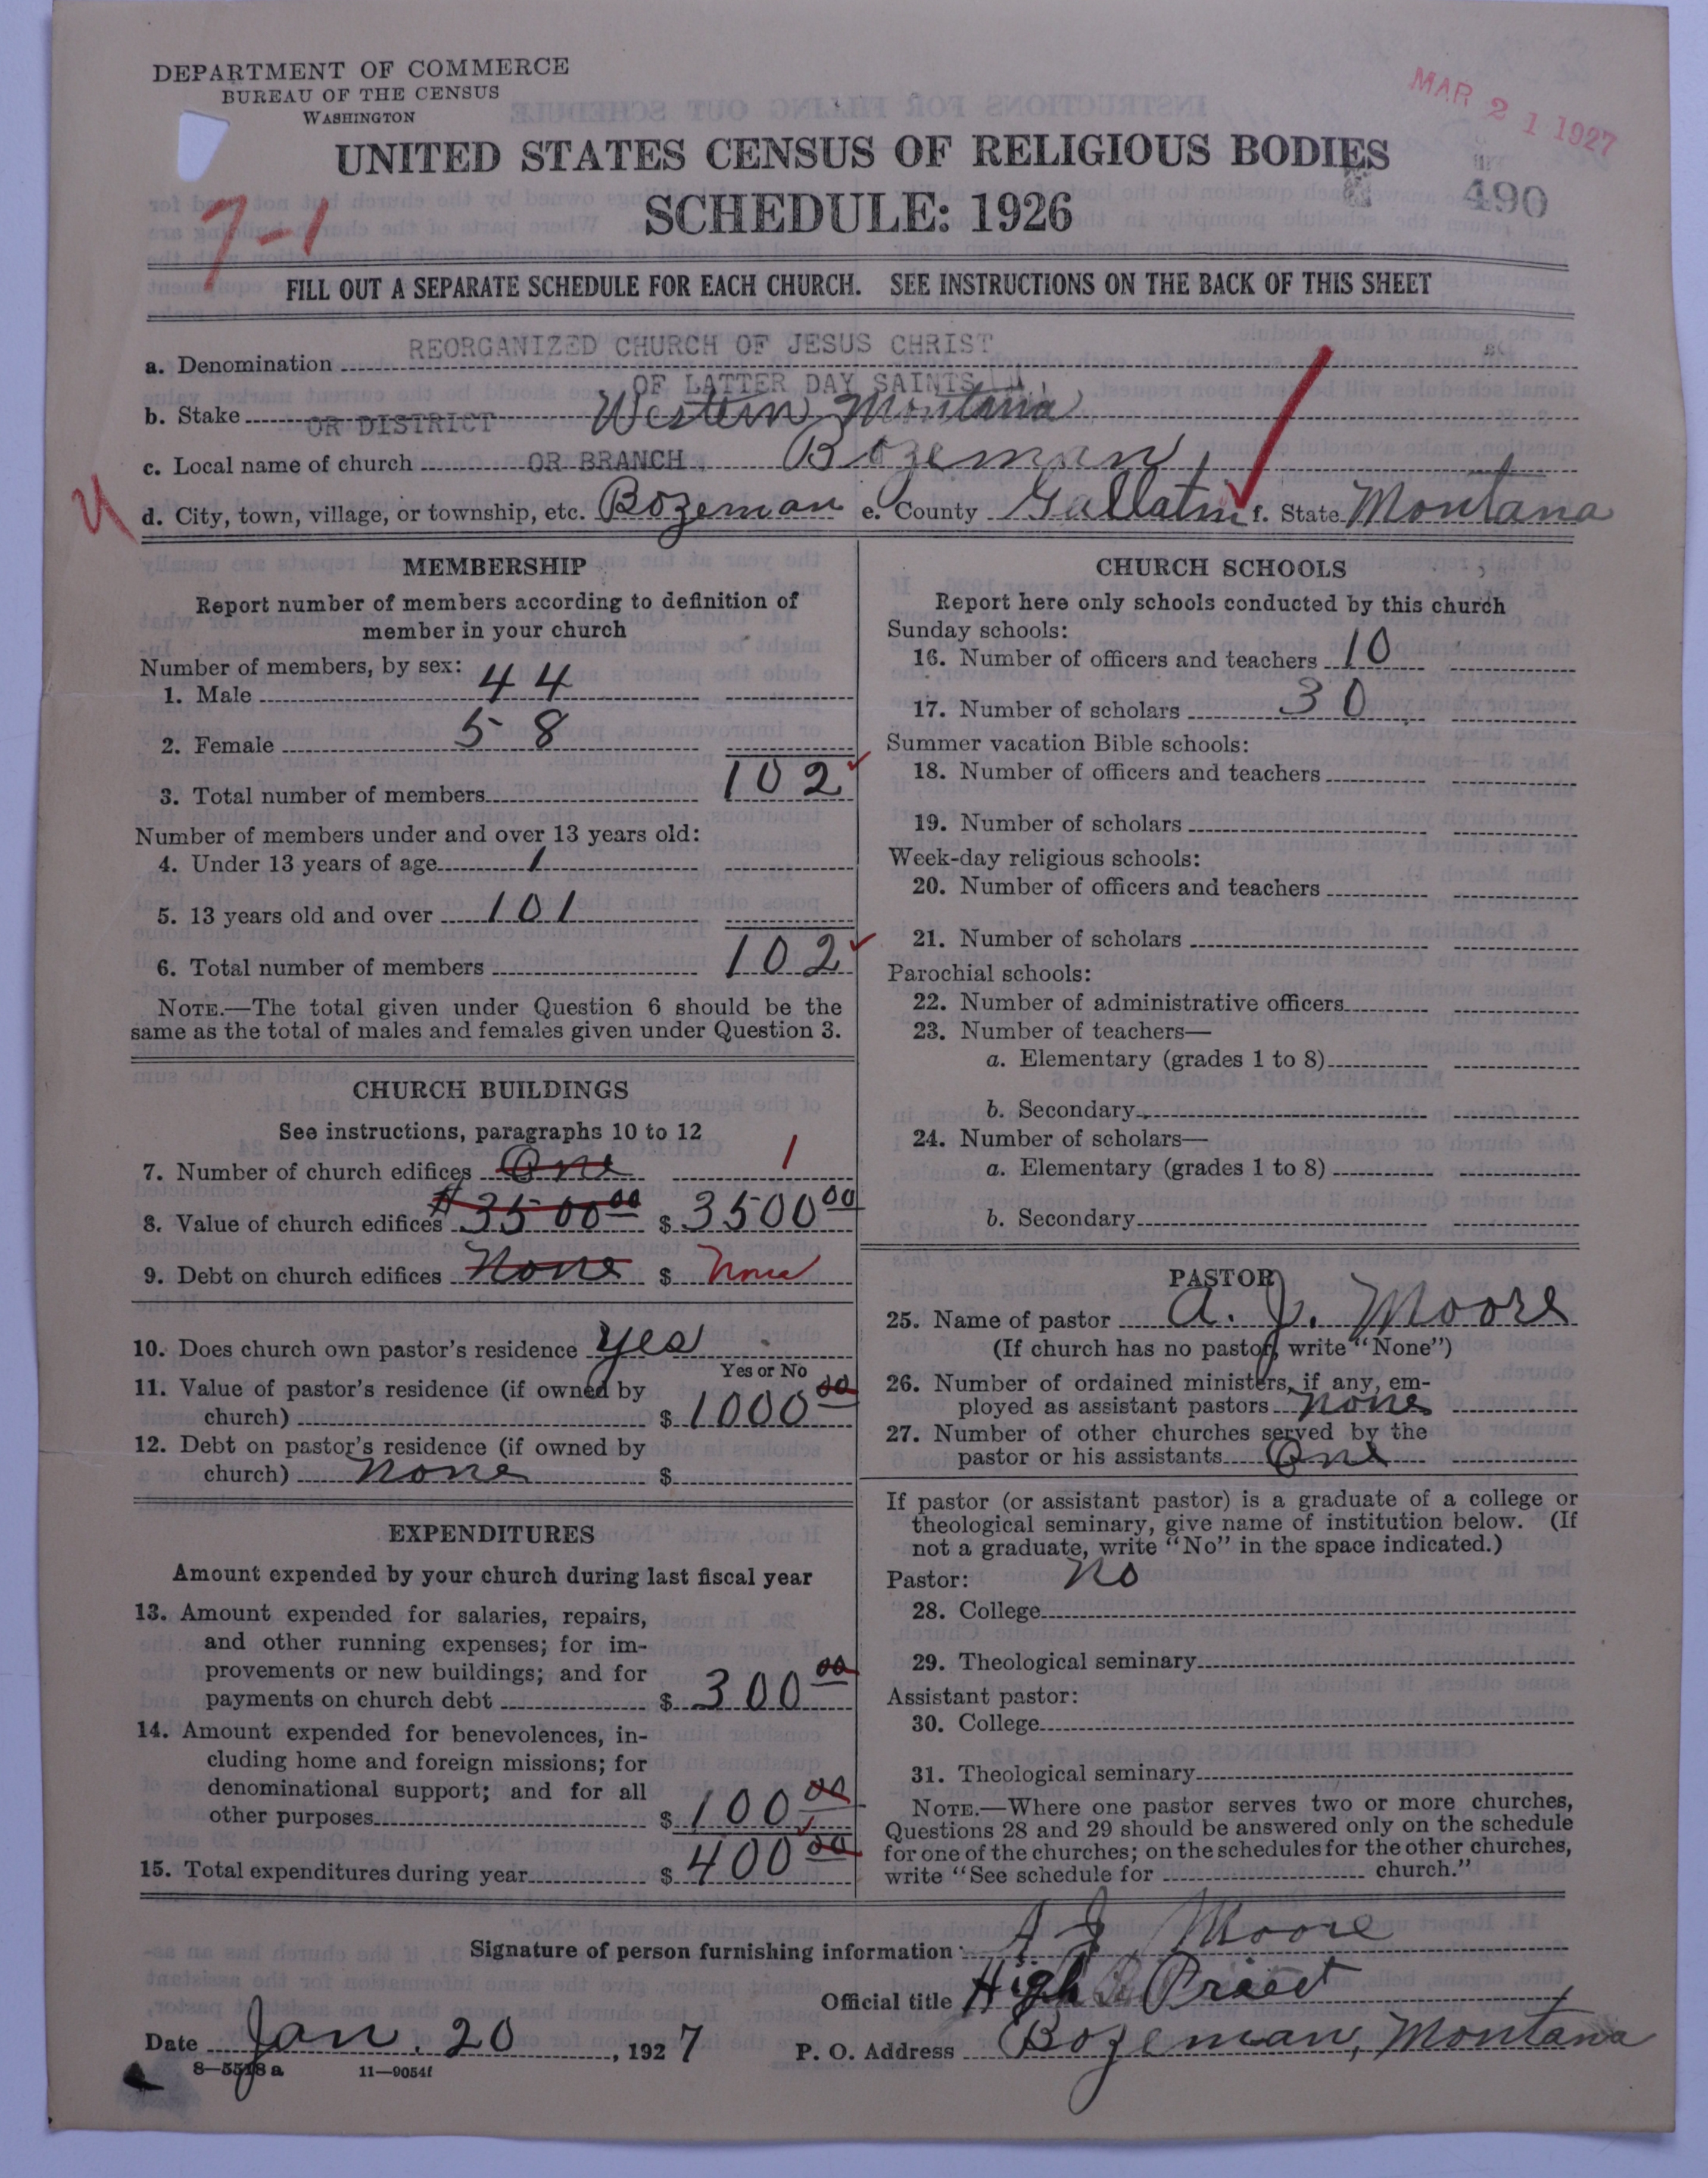 DEPARTMENT OF COMMERCE
BUREAU OF THE CENSUS
WASHINGTON
MAR 21 1927
UNITED STATES CENSUS OF RELIGIOUS BODIES
490
SCHEDULE: 1926
7-1
FILL OUT A SEPARATE SCHEDULE FOR EACH CHURCH. SEE INSTRUCTIONS ON THE BACK OF THIS SHEET
a. Denomination REORGANIZED CHURCH OF JESUS CHRIST
OF LATTER DAY SAINTS
b. Stake OR DISTRICT Western Montana
c. Local name of church OR BRANCH Bozeman
d. City, town, village, or township, etc. Bozeman e. County Gallatin f. State Montana
MEMBERSHIP
Report number of members according to definition of
member in your church
Number of members, by sex:
1. Male 44
2. Female 58
3. Total number of members 102
Number of members under and over 13 years old:
4. Under 13 years of age 1
5. 13 years old and over 101
6. Total number of members 102
NOTE.—The total given under Question 6 should be the
same as the total of males and females given under Question 3.
CHURCH BUILDINGS
See instructions, paragraphs 10 to 12
7. Number of church edifices One 1
8. Value of church edifices $3500 00 $ 3500 00
9. Debt on church edifices None $ None
10. Does church own pastor's residence Yes
Yes or No
11. Value of pastor's residence (if owned by
church) $ 1000 00
12. Debt on pastor's residence (if owned by
church) None $
EXPENDITURES
Amount expended by your church during last fiscal year
13. Amount expended for salaries, repairs,
and other running expenses; for im-
provements or new buildings; and for
payments on church debt $ 300 00
14. Amount expended for benevolences, in-
cluding home and foreign missions; for
denominational support; and for all
other purposes $ 100 00
15. Total expenditures during year $ 400 00
CHURCH SCHOOLS
Report here only schools conducted by this church
Sunday schools:
16. Number of officers and teachers 10
17. Number of scholars 30
Summer vacation Bible schools:
18. Number of officers and teachers
19. Number of scholars
Week-day religious schools:
20. Number of officers and teachers
21. Number of scholars
Parochial schools:
22. Number of administrative officers
23. Number of teachers—
a. Elementary (grades 1 to 8)
b. Secondary
24. Number of scholars—
a. Elementary (grades 1 to 8)
b. Secondary
PASTOR
25. Name of pastor A. J. Moore
(If church has no pastor, write "None")
26. Number of ordained ministers, if any, em-
ployed as assistant pastors none
27. Number of other churches served by the
pastor or his assistants One
If pastor (or assistant pastor) is a graduate of a college or
theological seminary, give name of institution below. (If
not a graduate, write "No" in the space indicated.)
Pastor: No
28. College
29. Theological seminary
Assistant pastor:
30. College
31. Theological seminary
NOTE.—Where one pastor serves two or more churches,
Questions 28 and 29 should be answered only on the schedule
for one of the churches; on the schedules for the other churches,
write "See schedule for church."
Signature of person furnishing information A J Moore
Official title High Priest
Date Jan. 20, 1927 P. O. Address Bozeman, Montana
8—5518 a 11—9054f